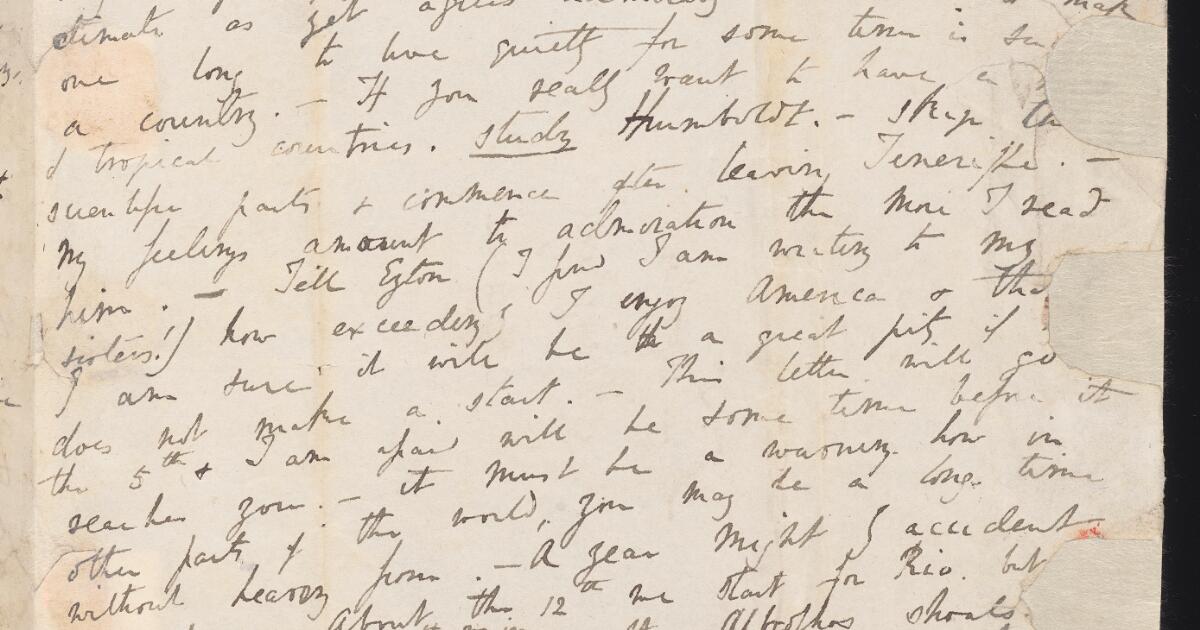 climate as yet agrees admirably
one long to live quietly for some time in su
a country. — If you really want to have a
of tropical countries. study Humboldt. — Skip the
scientific parts & commence after leaving Teneriffe. —
My feelings amount to admiration the more I read
him. — Tell Eyton (I find I am writing to my
sisters!) how exceedingly I enjoy America & tha
I am sure it will be a great pity if
does not make a start. — This letter will go
the 5th & I am afraid will be some time before it
reaches you. — it must be a warning. how in
other parts of the world, you may be a long time
without hearing from. — A year might by accident
About the 12th we start for Rio. but
Albrolhos shoals